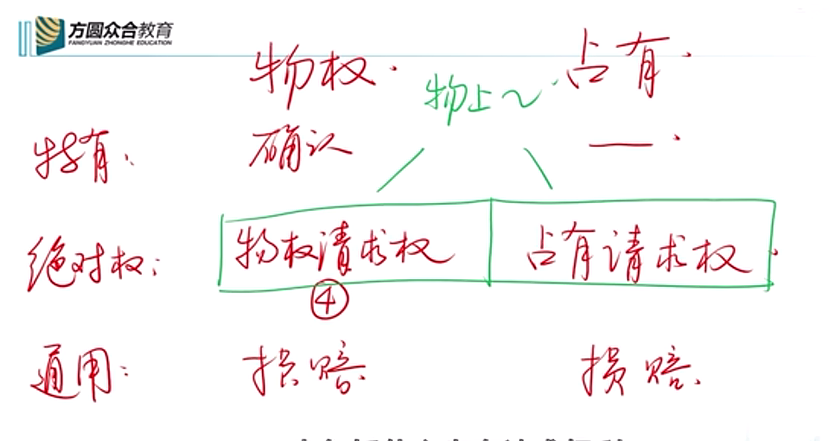 方圆众合教育
FANGYUAN ZHONGHE EDUCATION
物权. 占有.
物上~.
特有: 确认 — .
绝对权: 物权请求权 占有请求权.
④
通用: 损赔. 损赔.